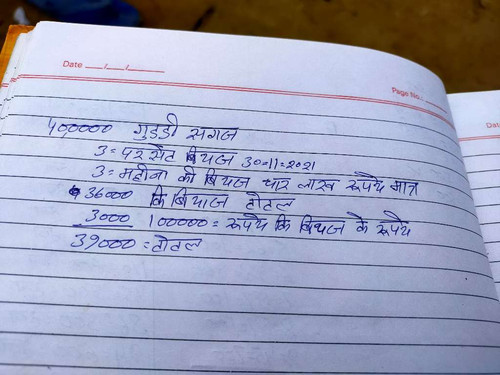 Date __/__/____
Page No.:
Dat
400000 गुडडी सगज
3 = परसेट बियज 30-11-2021
3 = महीना की बियज चार लाख रूपये मात्र
36000 कि बियाज टोटल
3000 100000 = रूपये कि बियज के रूपये
39000 = टोटल